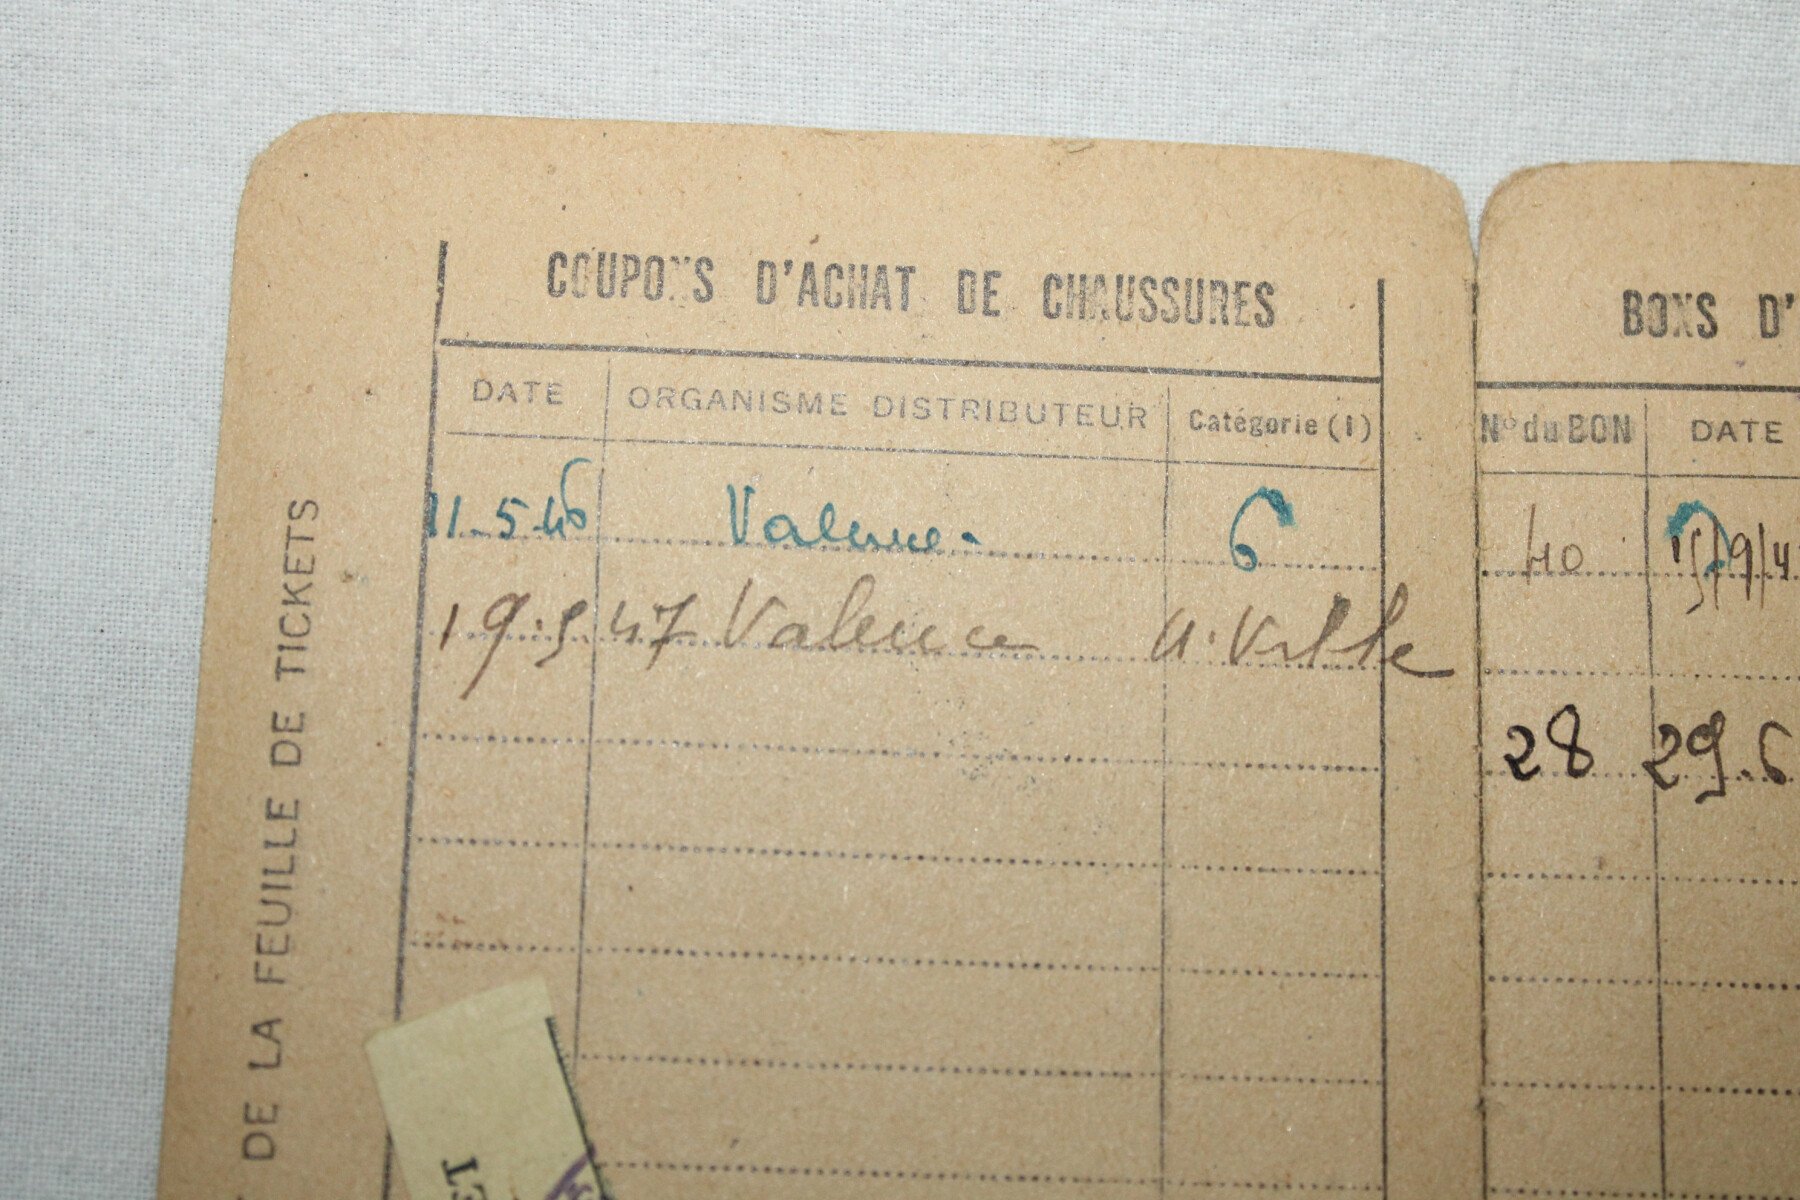 COUPONS D'ACHAT DE CHAUSSURES
DATE ORGANISME DISTRIBUTEUR Catégorie (1)
11.5.46 Valence. 6
19.5 47 Valence U. Ville
BONS D'
N° du BON DATE
40 15/9/4
28 29.6
DE LA FEUILLE DE TICKETS